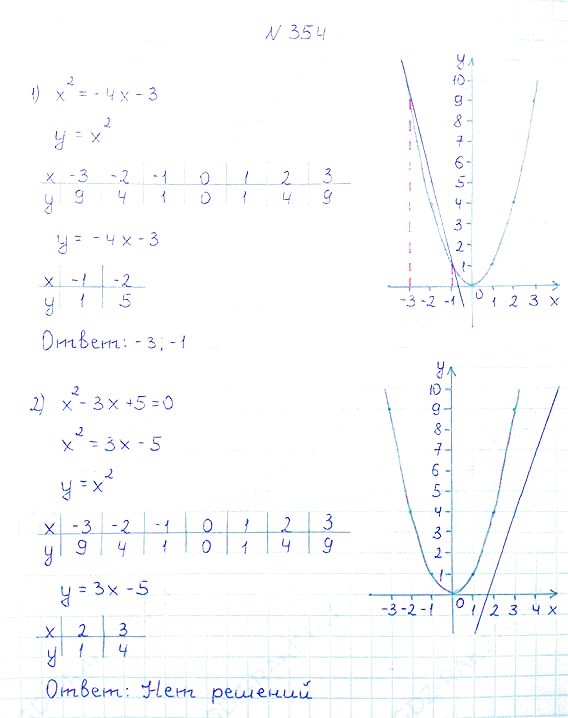 N 354
1) x² = -4x - 3
y = x²
x -3 -2 -1 0 1 2 3
y 9 4 1 0 1 4 9
y = -4x - 3
x -1 -2
y 1 5
Ответ: -3; -1
y
10
9
8
7
6
5
4
3
2
1
-3 -2 -1 0 1 2 3 x
2) x² - 3x + 5 = 0
x² = 3x - 5
y = x²
x -3 -2 -1 0 1 2 3
y 9 4 1 0 1 4 9
y = 3x - 5
x 2 3
y 1 4
Ответ: Нет решений
y
10
9
8
7
6
5
4
3
2
1
-3 -2 -1 0 1 2 3 4 x